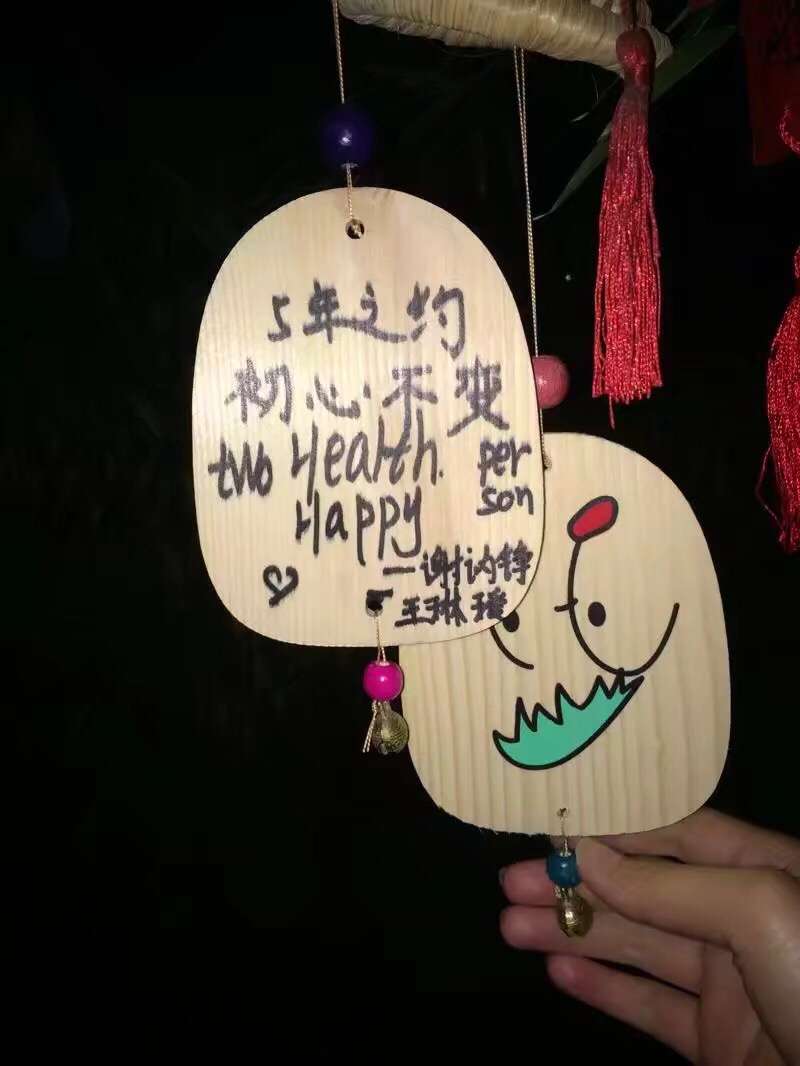 5年之约
初心不变
two Health person
Happy
—谢汭铮
王琳瑾